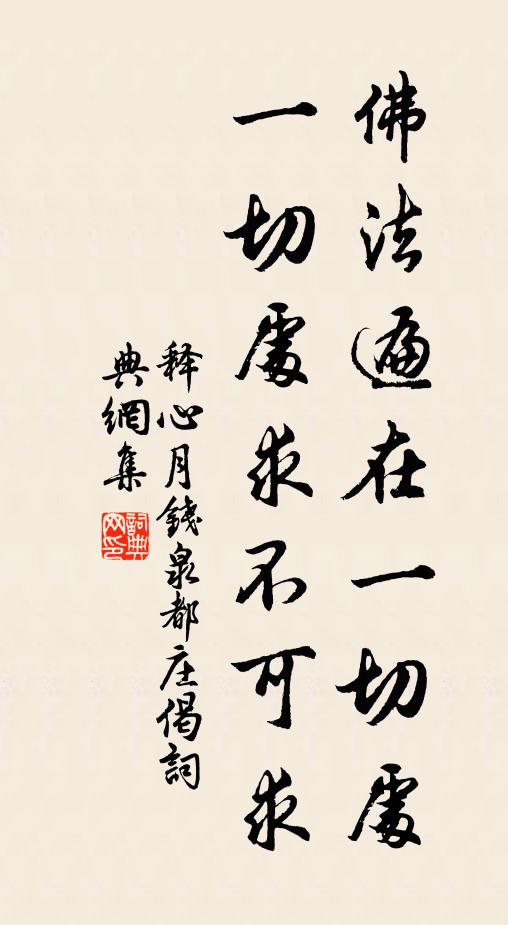 佛法遍在一切處
一切處求不可求
释心月錢泉都庄偈詞
典網集
詞典
网印